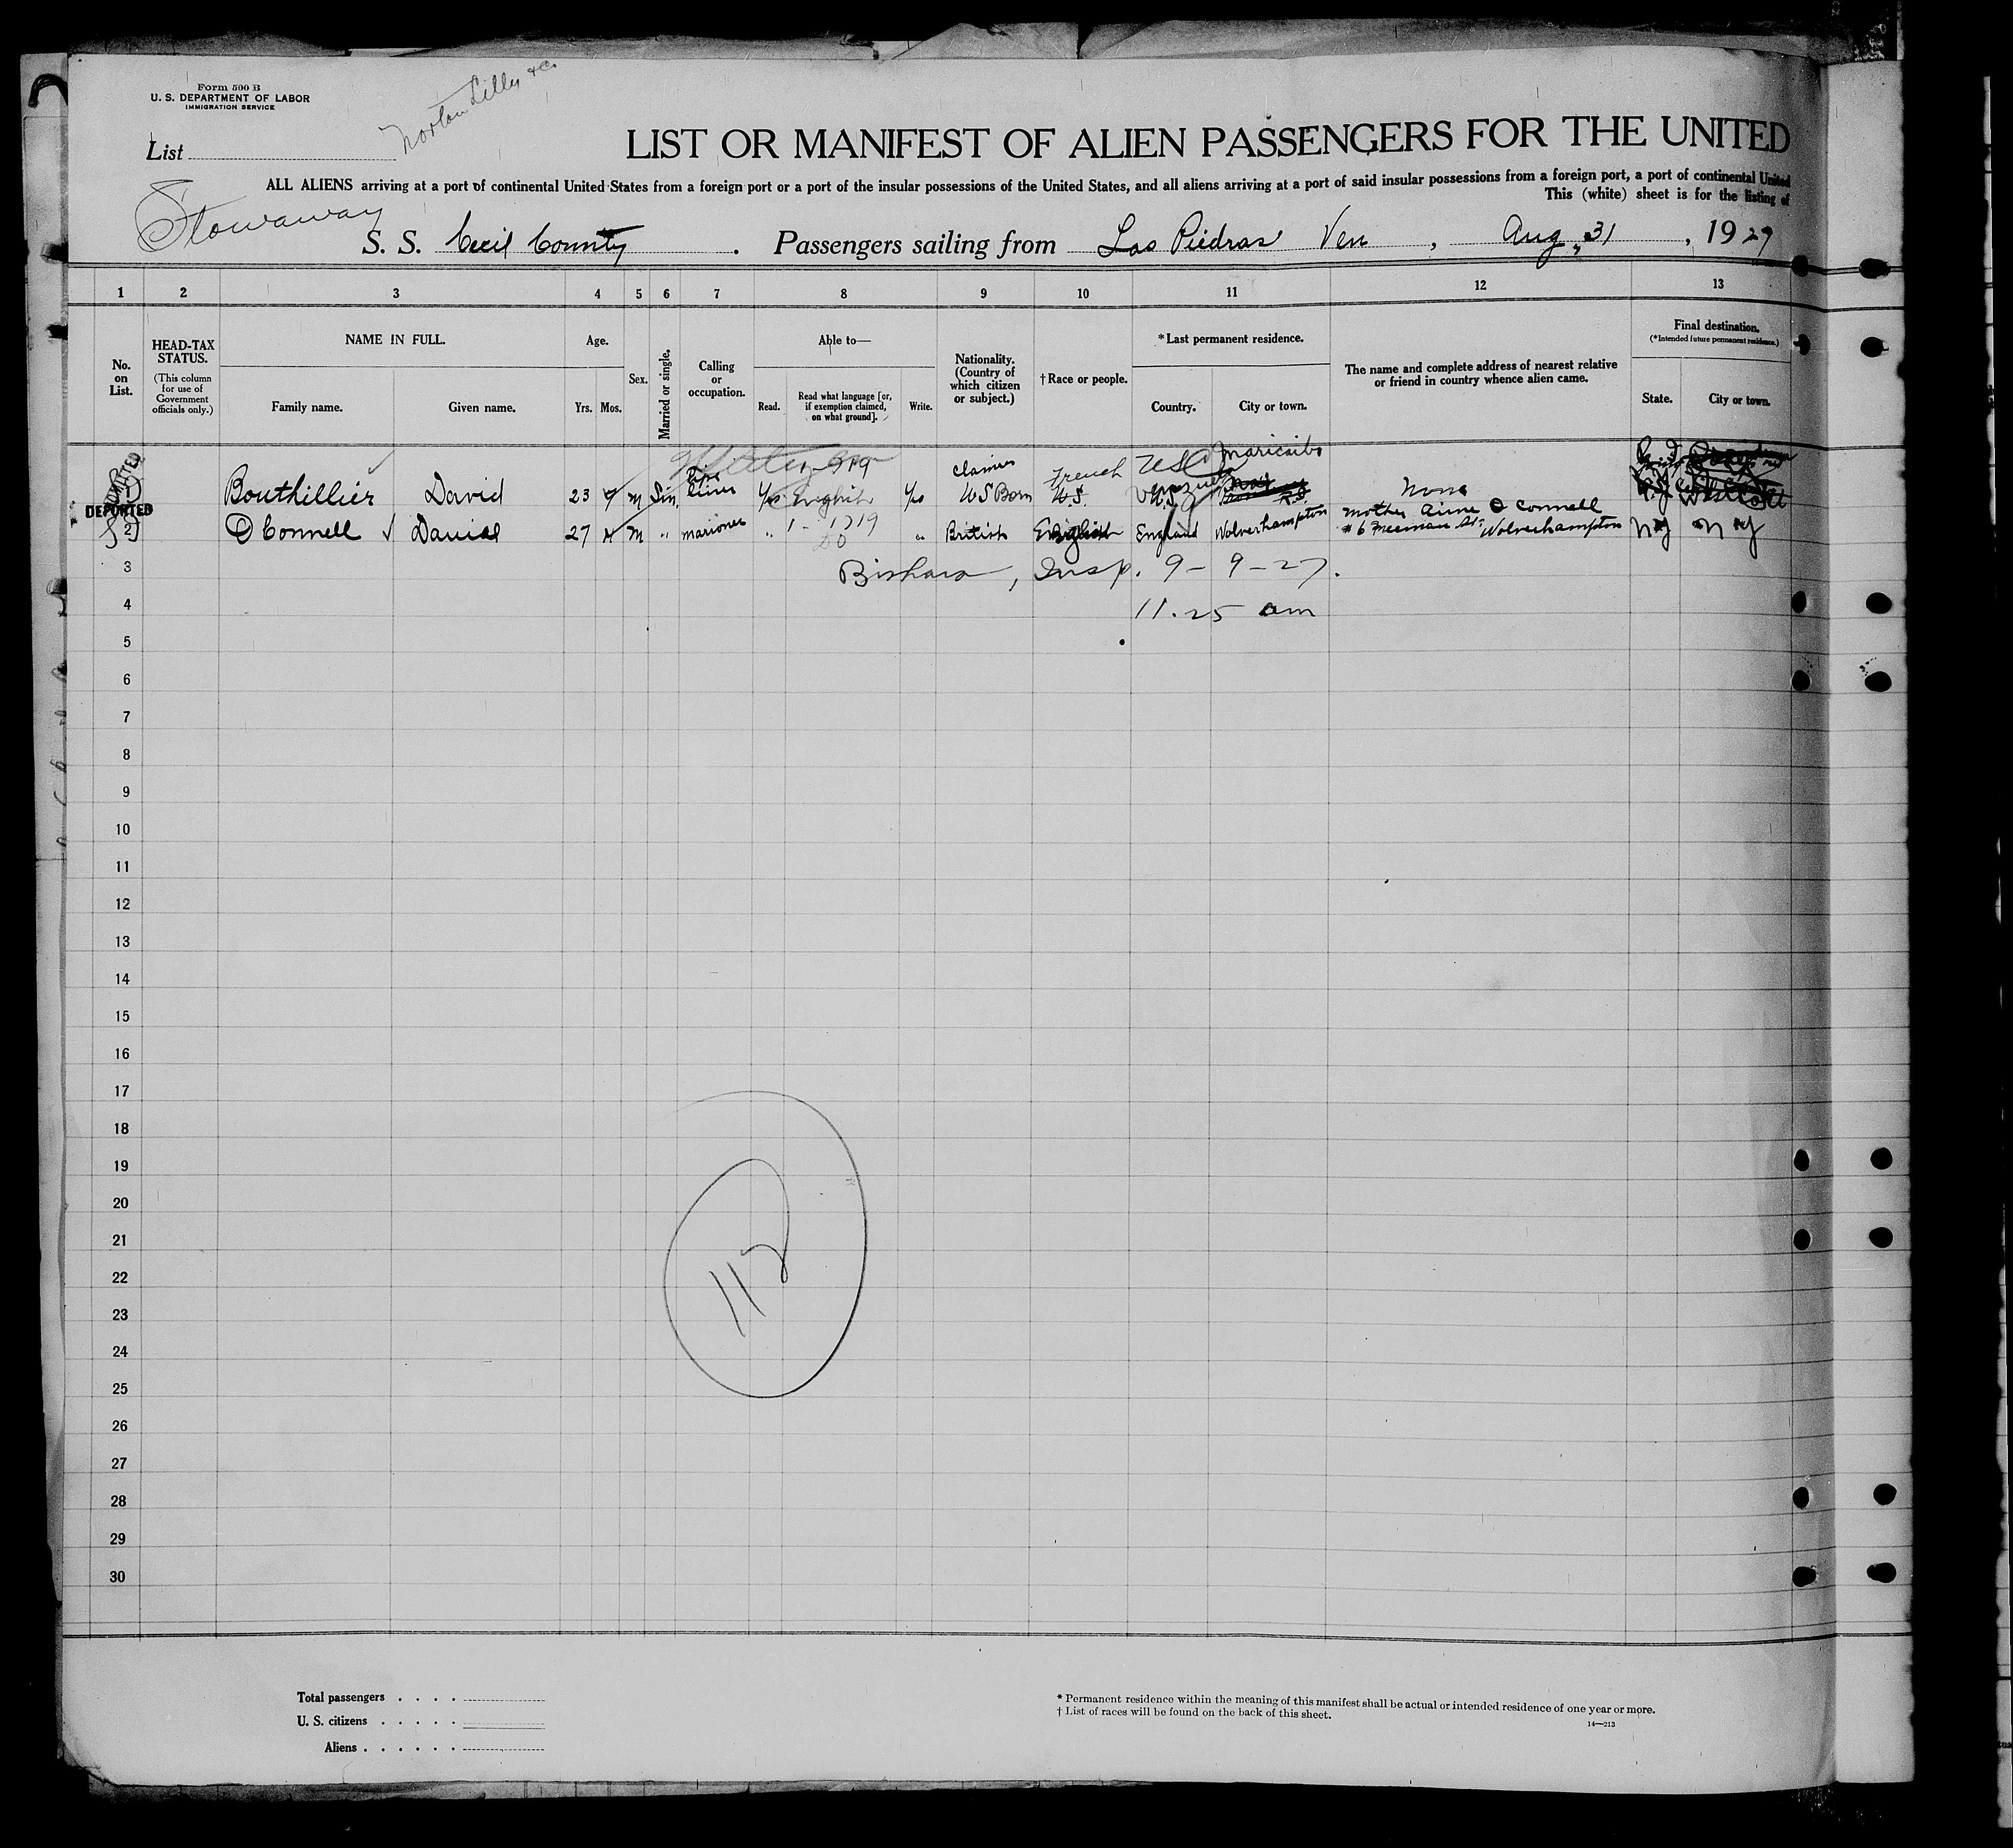 Form 500 B
U. S. DEPARTMENT OF LABOR
IMMIGRATION SERVICE
Norton Lilly & Co
List
LIST OR MANIFEST OF ALIEN PASSENGERS FOR THE UNITED
ALL ALIENS arriving at a port of continental United States from a foreign port or a port of the insular possessions of the United States, and all aliens arriving at a port of said insular possessions from a foreign port, a port of continental United
This (white) sheet is for the listing of
Stowaway
S. S. Cecil County. Passengers sailing from Las Piedras Ven, Aug. 31, 1927
1 2 3 4 5 6 7 8 9 10 11 12 13
No. on List.
HEAD-TAX STATUS.
(This column for use of Government officials only.)
NAME IN FULL.
Family name. Given name.
Age.
Yrs. Mos.
Sex.
Married or single.
Calling or occupation.
Able to—
Read. Read what language [or, if exemption claimed, on what ground]. Write.
Nationality. (Country of which citizen or subject.)
† Race or people.
* Last permanent residence.
Country. City or town.
The name and complete address of nearest relative or friend in country whence alien came.
Final destination.
(*Intended future permanent residence.)
State. City or town.
ADMITTED
claims French Maricaibo
1 Bouthillier David 23 m Sin. Pipe liner Yes English Yes US Born U.S. Venezuela None
DEPORTED
2 O Connell Daniel 27 m " mariner " " British English England Wolverhampton mother Anne O Connell
# 6 Freeman St. Wolverhampton N Y N Y
3 Bishara, Insp. 9-9-27.
4 11.25 am
5
6
7
8
9
10
11
12
13
14
15
16
17
18
19
20
21
22
23
24
25
26
27
28
29
30
112
Total passengers
U. S. citizens
Aliens
* Permanent residence within the meaning of this manifest shall be actual or intended residence of one year or more.
† List of races will be found on the back of this sheet.
14—213